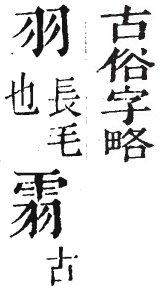 古俗字略
羽長毛也䨒古